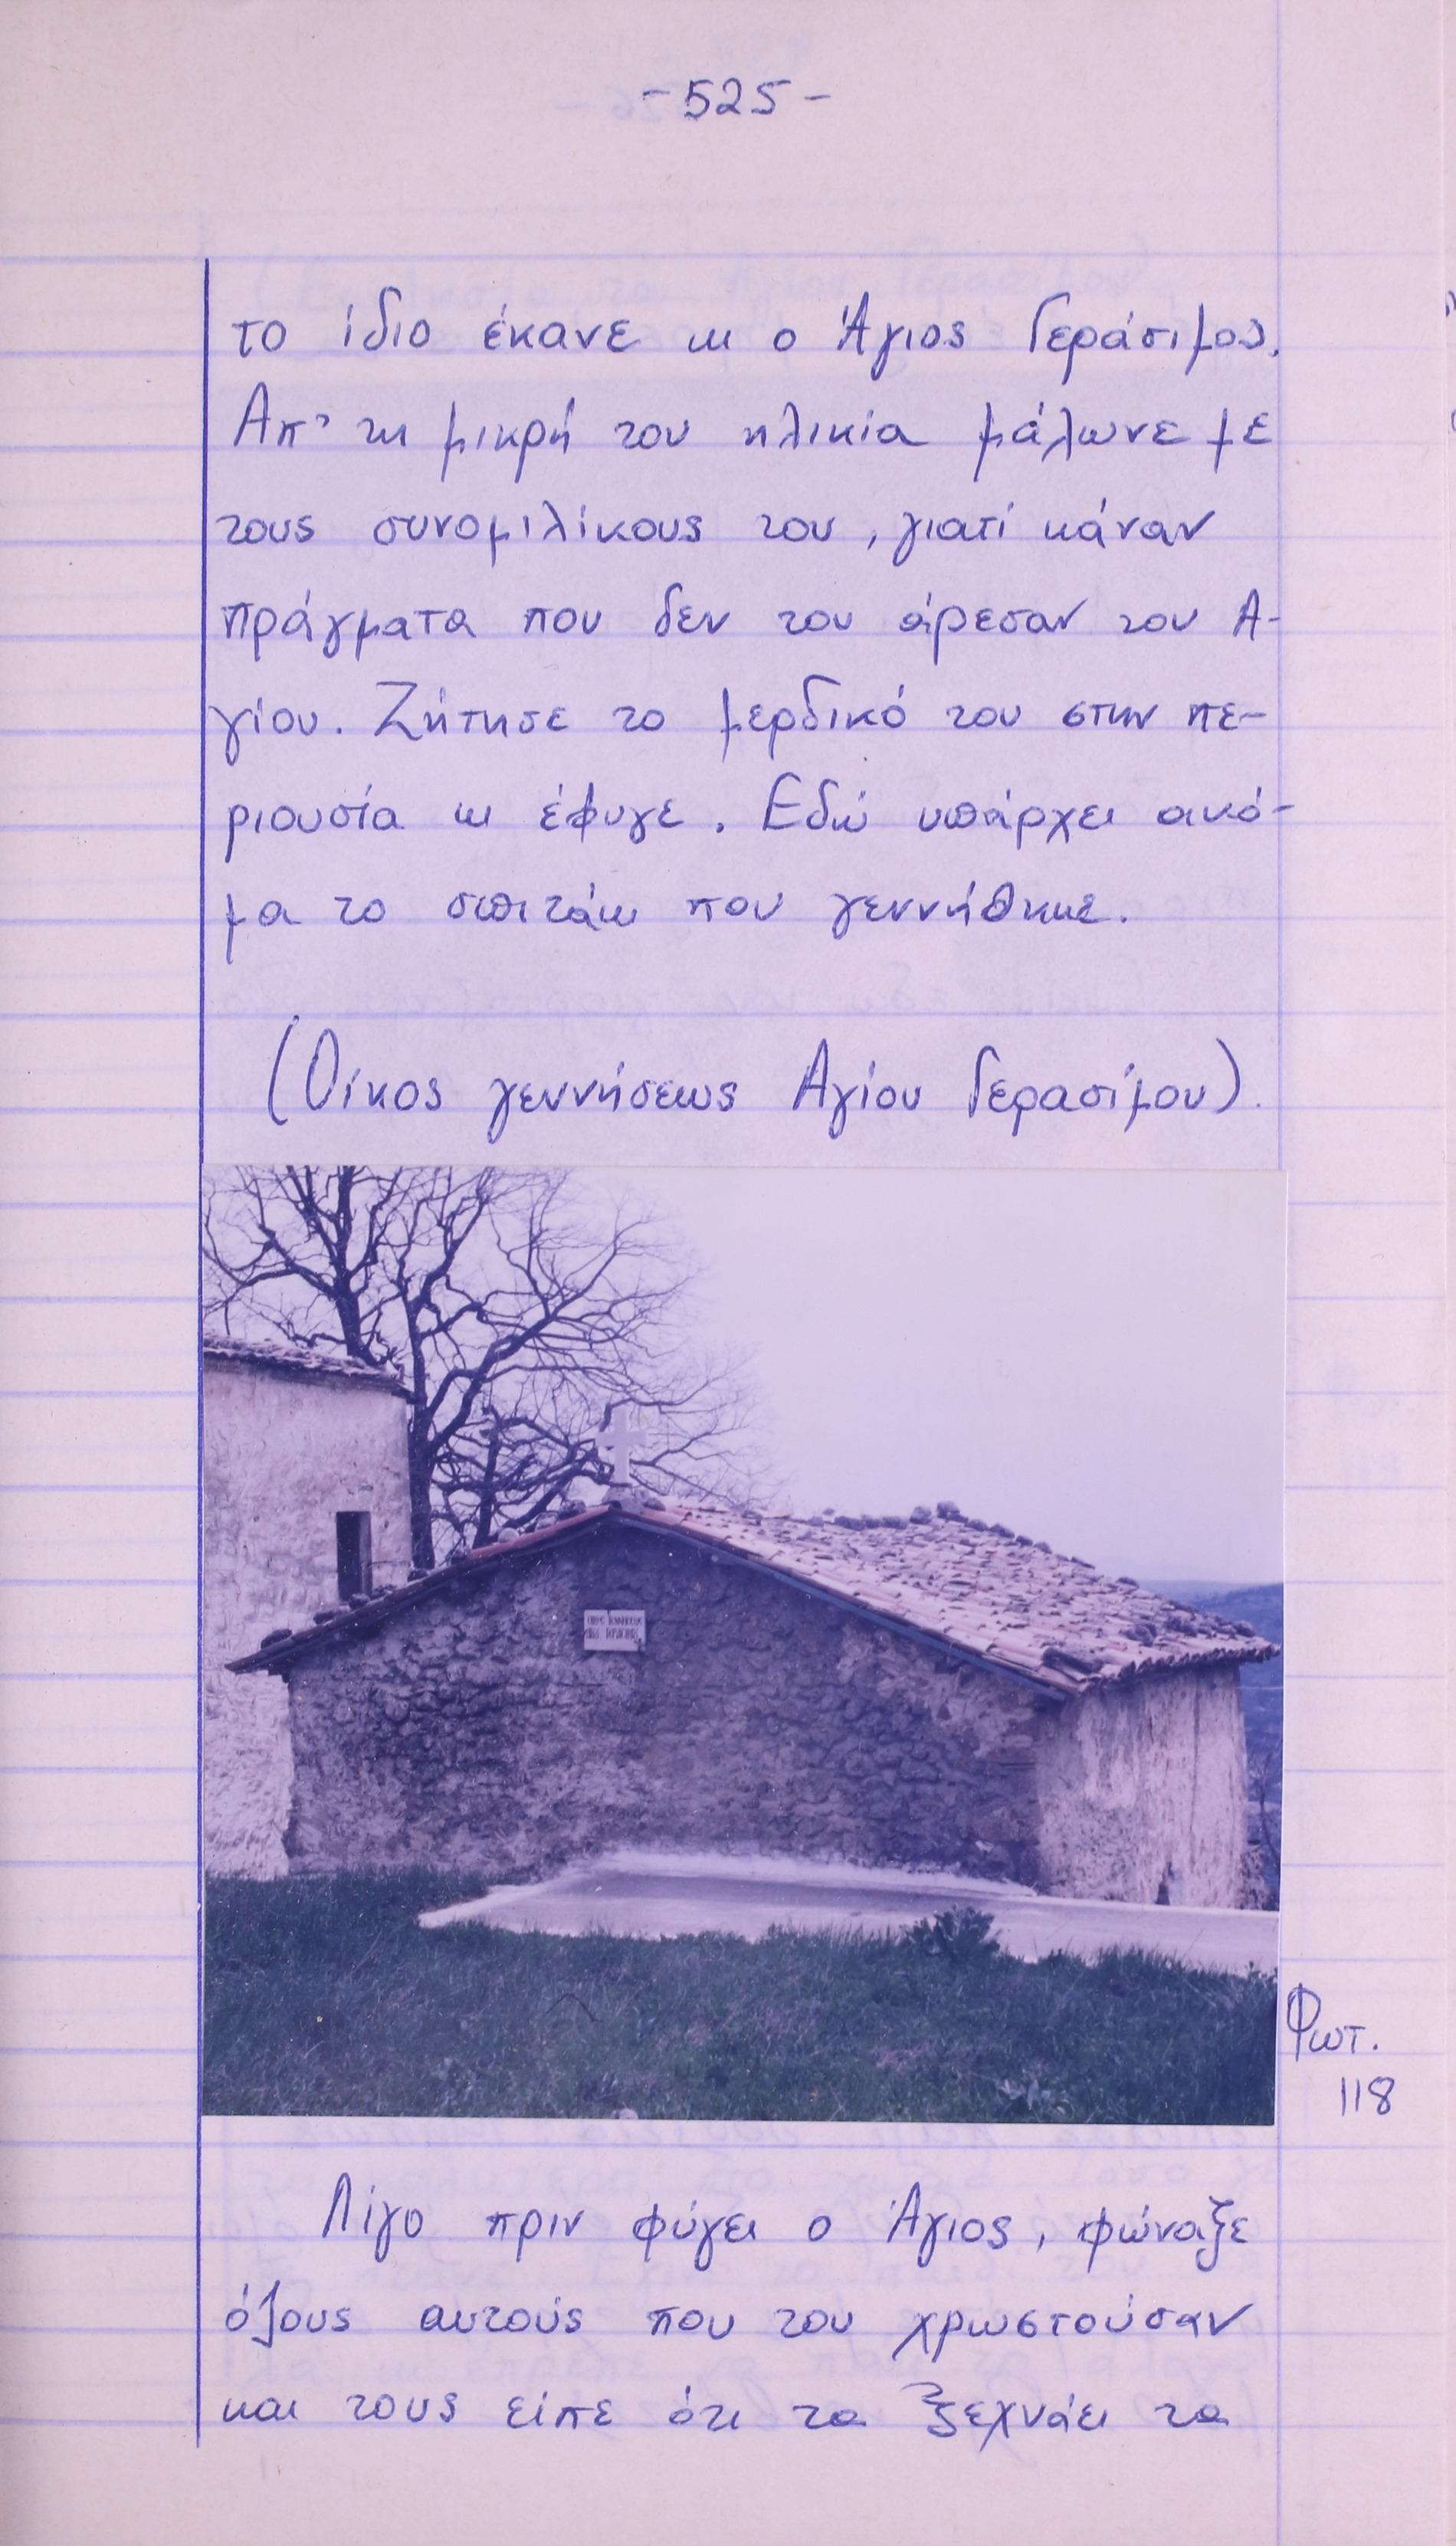 -525-
το ίδιο έκανε κι ο Άγιος Γεράσιμος.
Απ' τη μικρή του ηλικία μάλωνε με
τους συνομιλίκους του, γιατί κάναν
πράγματα που δεν του άρεσαν του Α-
γίου. Ζήτησε το μερδικό του στην πε-
ριουσία κι έφυγε. Εδώ υπάρχει ακό-
μα το σπιτάκι που γεννήθηκε.
(Οίκος γεννήσεως Αγίου Γερασίμου).
ΟΙΚΟΣ ΓΕΝΝΗΣΕΩΣ
Φωτ.
118
Λίγο πριν φύγει ο Άγιος, φώναξε
όλους αυτούς που του χρωστούσαν
και τους είπε ότι τα ξεχνάει τα